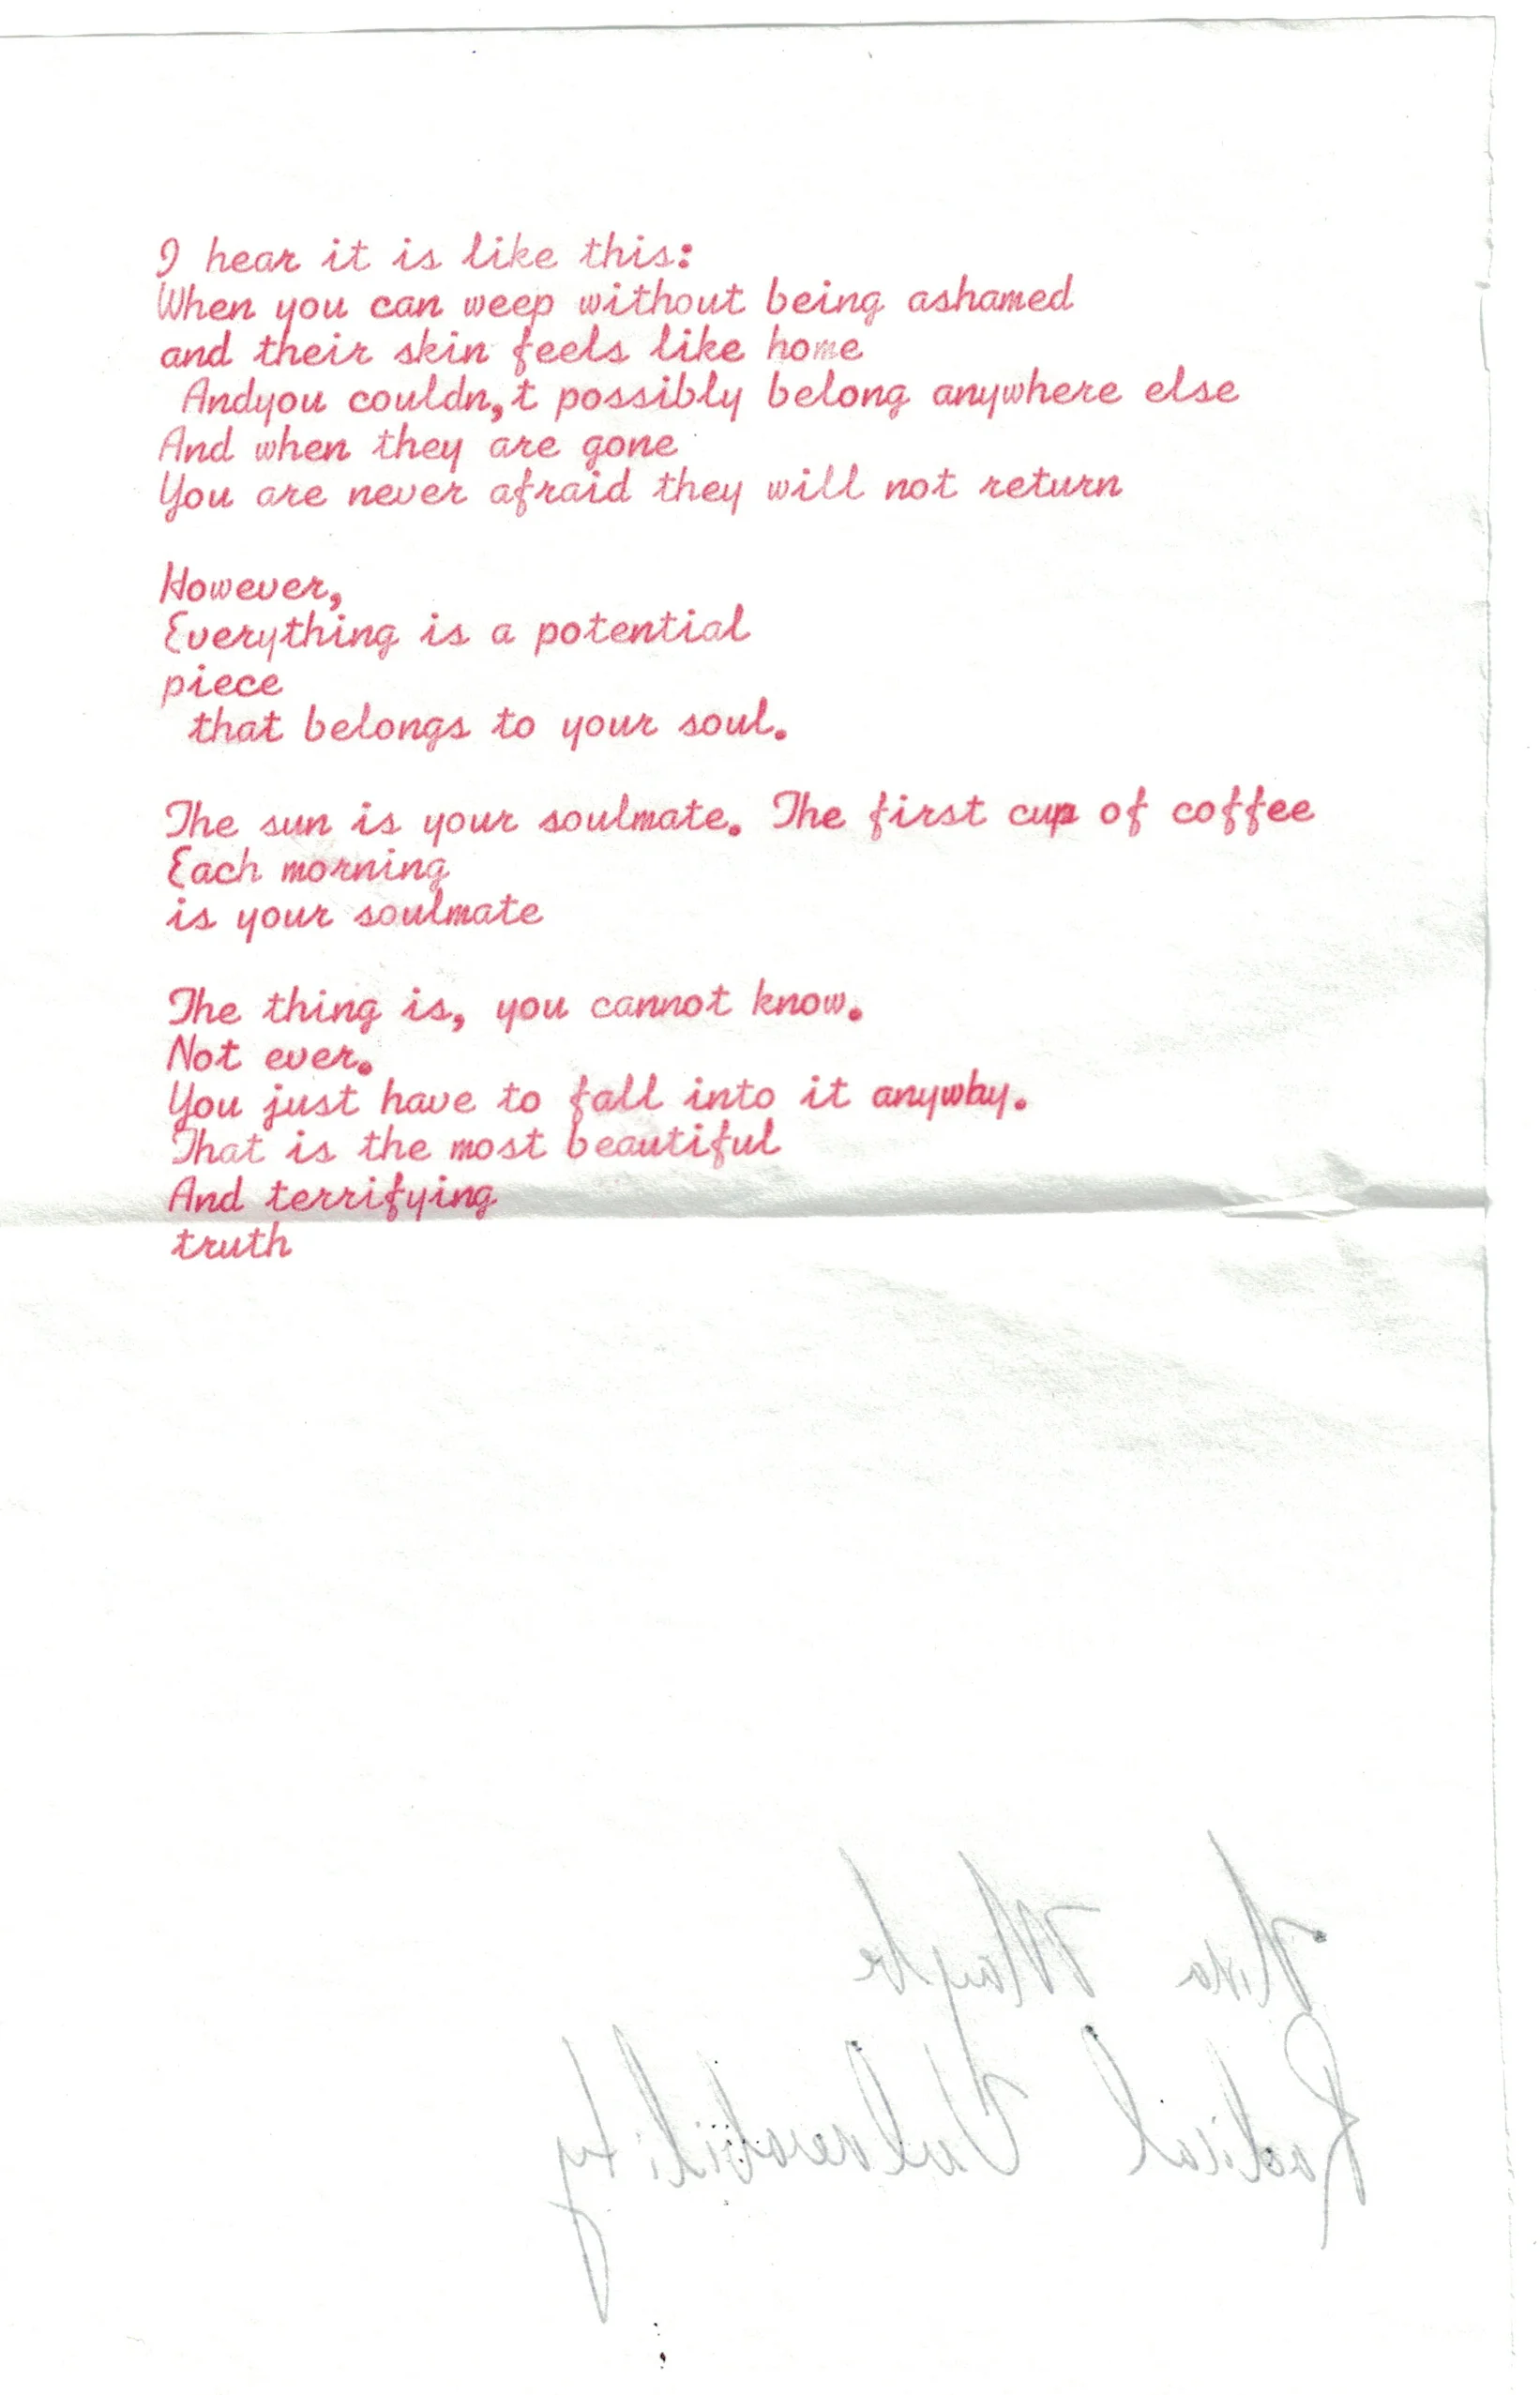 I hear it is like this:
When you can weep without being ashamed
and their skin feels like home
Andyou couldn,t possibly belong anywhere else
And when they are gone
You are never afraid they will not return
However,
Everything is a potential
piece
that belongs to your soul.
The sun is your soulmate. The first cup of coffee
Each morning
is your soulmate
The thing is, you cannot know.
Not ever.
You just have to fall into it anywby.
That is the most beautiful
And terrifying
truth
Maybe
Radical Vulnerability